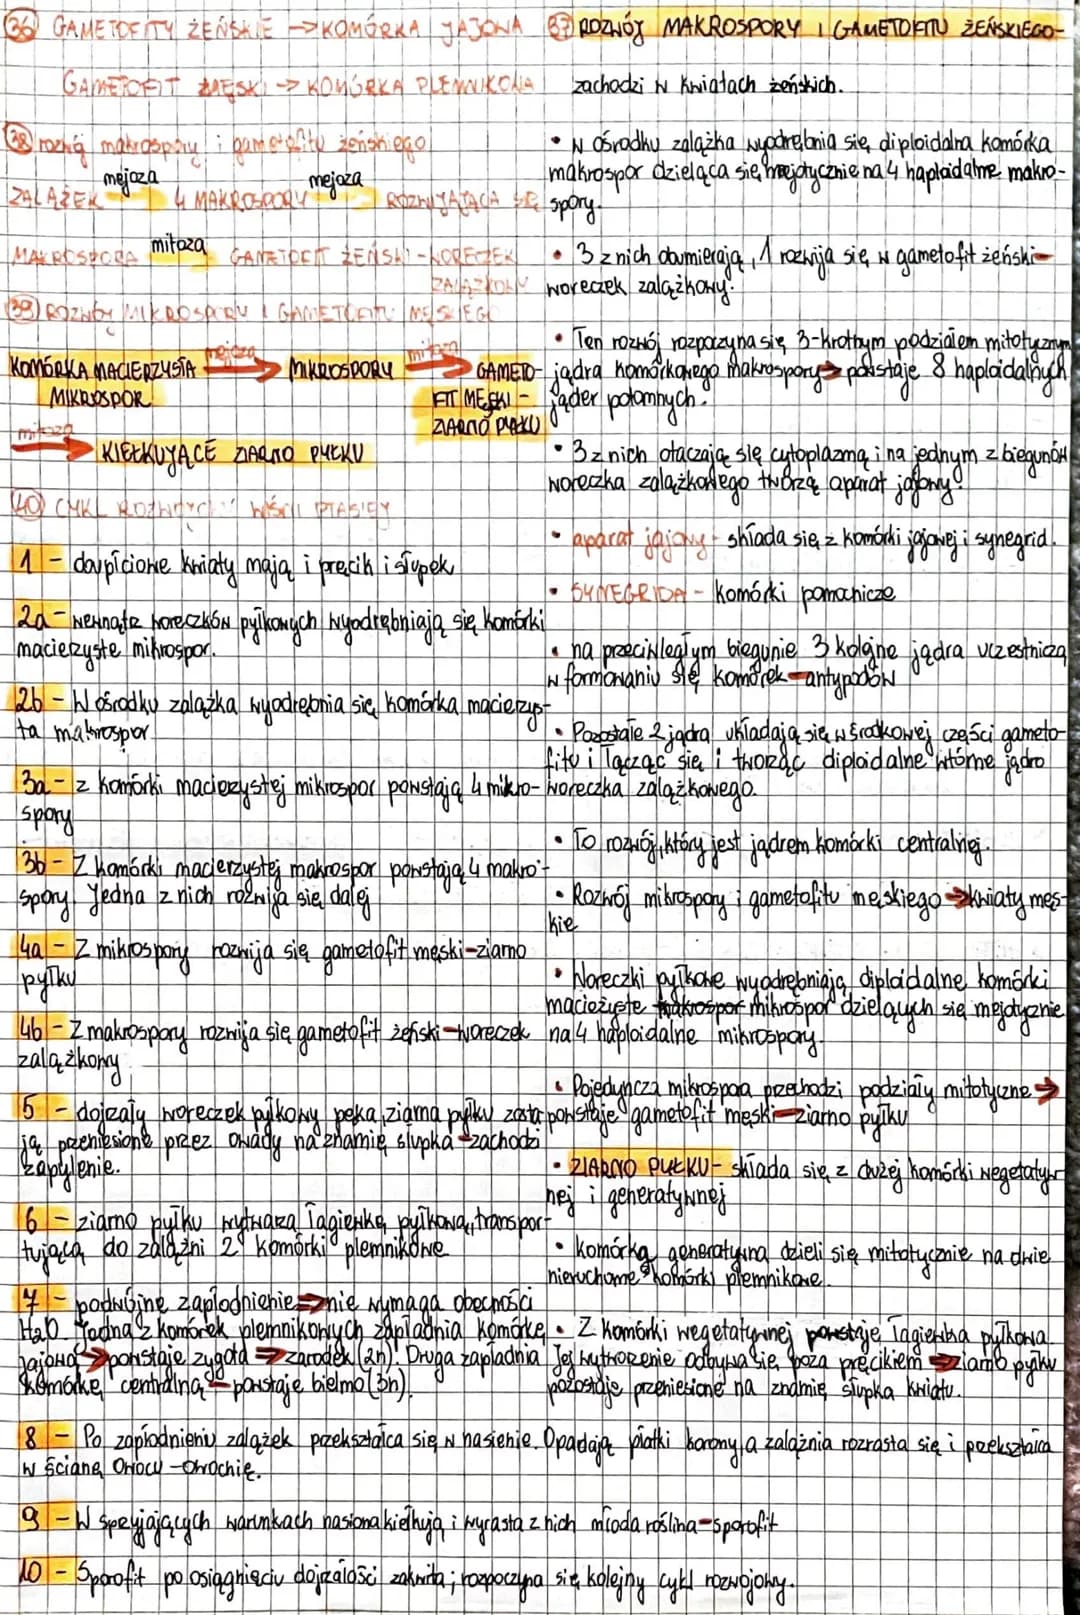 36 GAMETOFITY ŻEŃSKIE → KOMÓRKA JAJOWA
GAMETOFIT MĘSKI → KOMÓRKA PLEMNIKOWA
38 rozwój makrospory i gametofitu żeńskiego
mejoza mejoza
ZALĄŻEK 4 MAKROSPORY ROZWIJAJĄCA SIĘ
mitoza
MAKROSPORA GAMETOFIT ŻEŃSKI - WORECZEK
ZALĄŻKOWY
39 ROZWÓJ MIKROSPORY I GAMETOFITU MĘSKIEGO
mejoza mitoza
KOMÓRKA MACIERZYSTA → MIKROSPORY → GAMETO-
MIKROSPOR FIT MĘSKI -
ZIARNO PYŁKU
mitoza
→ KIEŁKUJĄCE ZIARNO PYŁKU
40 CYKL ROZWOJOWY WIŚNI PTASIEJ
1 - dwupłciowe kwiaty mają i pręcik i słupek
2a - wewnątrz woreczków pyłkowych wyodrębniają się komórki
macierzyste mikrospor.
2b - W ośrodku zalążka wyodrębnia się komórka macierzys-
ta makrospor
3a - z komórki macierzystej mikrospor powstają 4 mikro-
spory
3b - Z komórki macierzystej makrospor powstają 4 makro-
spory. Jedna z nich rozwija się dalej
4a - Z mikrospory rozwija się gametofit męski - ziarno
pyłku
4b - Z makrospory rozwija się gametofit żeński - woreczek
zalążkowy
5 - dojrzały woreczek pyłkowy pęka, ziarna pyłku zosta
ją przeniesione przez owady na znamię słupka - zachodzi
zapylenie.
6 - ziarno pyłku wytwarza łagienkę pyłkową, transpor-
tującą do zalążni 2 komórki plemnikowe
7 - podwójne zapłodnienie ⇒ nie wymaga obecności
H2O. Jedna z komórek plemnikowych zapładnia komórkę
jajową → powstaje zygota ⇒ zarodek (2n). Druga zapładnia
komórkę centralną - powstaje bielmo (3n).
8 - Po zapłodnieniu zalążek przekształca się w nasienie. Opadają płatki korony, a zalążnia rozrasta się i przekształca
w ścianę owocu - owocnię.
9 - W sprzyjających warunkach nasiona kiełkują i wyrasta z nich młoda roślina - sporofit
10 - Sporofit po osiągnięciu dojrzałości zakwita; rozpoczyna się kolejny cykl rozwojowy.
37 ROZWÓJ MAKROSPORY I GAMETOFITU ŻEŃSKIEGO-
zachodzi w kwiatach żeńskich.
• W ośrodku zalążka wyodrębnia się diploidalna komórka
makrospor dzieląca się mejotycznie na 4 haploidalne makro-
spory.
• 3 z nich obumierają, 1 rozwija się w gametofit żeński -
woreczek zalążkowy.
• Ten rozwój rozpoczyna się 3-krotnym podziałem mitotycznym
jądra komórkowego makrospory → powstaje 8 haploidalnych
jąder potomnych.
• 3 z nich otaczają się cytoplazmą i na jednym z biegunów
woreczka zalążkowego tworzą aparat jajowy.
• aparat jajowy - składa się z komórki jajowej i synegrid.
• SYNEGRIDA - komórki pomocnicze
• na przeciwległym biegunie 3 kolejne jądra uczestniczą
w formowaniu się komórek - antypodów
• Pozostałe 2 jądra układają się w środkowej części gameto-
fitu i łącząc się i tworząc diploidalne wtórne jądro
woreczka zalążkowego.
• To rozwój, który jest jądrem komórki centralnej.
• Rozwój mikrospory i gametofitu męskiego → kwiaty męs-
kie
• Woreczki pyłkowe wyodrębniają diploidalne komórki
macieżyste makrospor mikrospor dzielących się mejotycznie
na 4 haploidalne mikrospory.
• Pojedyncza mikrospora przechodzi podziały mitotyczne →
powstaje gametofit męski - ziarno pyłku
• ZIARNO PYŁKU - składa się z dużej komórki wegetatyw-
nej i generatywnej
• komórka generatywna dzieli się mitotycznie na dwie
nieruchome komórki plemnikowe.
• Z komórki wegetatywnej powstaje łagienka pyłkowa.
Jej wytworzenie odbywa się poza pręcikiem ⇒ ziarno pyłku
pozostaje przeniesione na znamię słupka kwiatu.